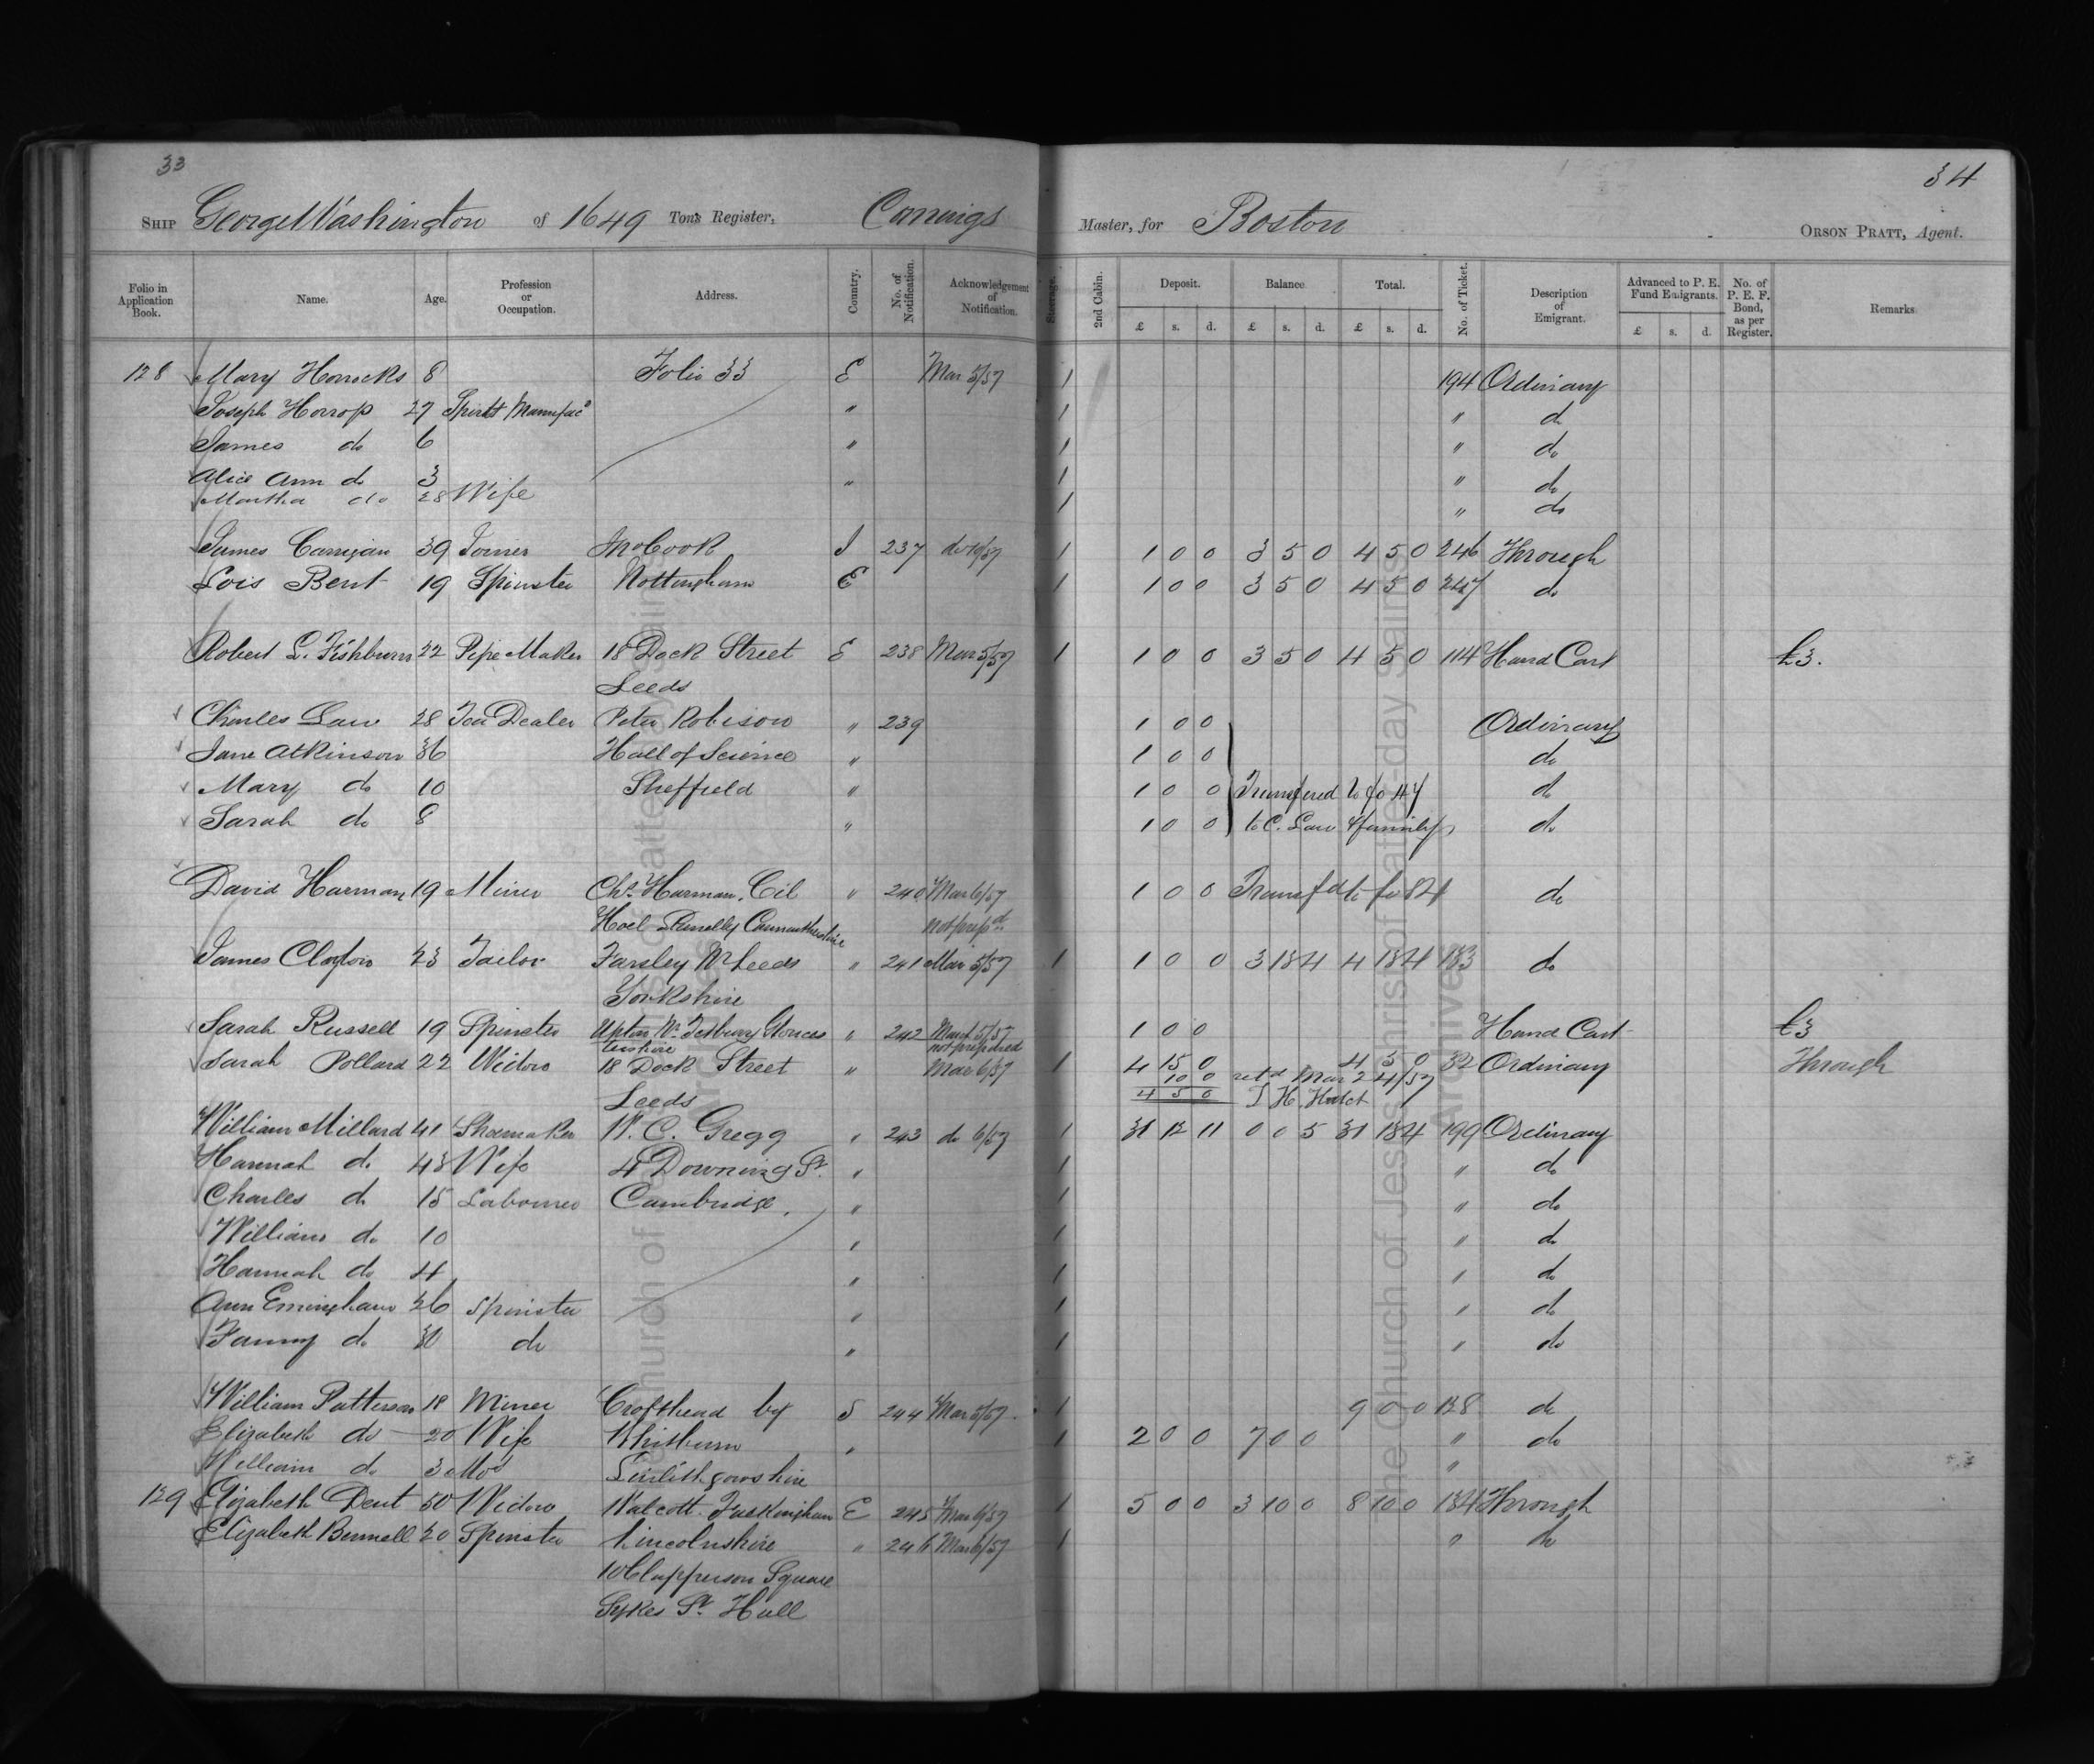 33
34
SHIP George Washington of 1649 Tons Register, Cannings Master, for Boston ORSON PRATT, Agent.
Folio in Application Book. Name. Age. Profession or Occupation. Address. Country. No. of Notification. Acknowledgement of Notification. Steerage. 2nd Cabin. Deposit. Balance Total. No. of Ticket. Description of Emigrant. Advanced to P. E. Fund Emigrants. No. of P. E. F. Bond, as per Register. Remarks
£ s. d. £ s. d. £ s. d. £ s. d.
128 Mary Horrocks 8 Folio 33 E Mar 5/57 1 194 Ordinary
Joseph Horrop 27 Manufac " 1 " do
James do 6 " 1 " do
Alice Ann do 3 " 1 " do
Martha do 28 Wife 1 " do
James Carrigan 39 Joiner Jno Cook I 237 do 10/57 1 1 0 0 3 5 0 4 5 0 246 Through
Lois Bent 19 Spinster Nottingham E 1 1 0 0 3 5 0 4 5 0 247 do
Robert L. Fishburn 22 Pipe Maker 18 Dock Street E 238 Mar 5/57 1 1 0 0 3 5 0 4 5 0 114 Hand Cart £3.
Leeds
Charles Law 28 Tea Dealer Peter Robison " 239 1 0 0 Ordinary
Jane Atkinson 36 Hall of Science " 1 0 0 do
Mary do 10 Sheffield " 1 0 0 Transfered to fo 47 do
Sarah do 8 " 1 0 0 to C. Law & family do
David Harman 19 Miner Chs. Harman, Cil " 240 Mar 6/57 1 0 0 Transfd to fo 84 do
Hoel Llanelly Carmarthenshire not prepd
James Clayton 23 Tailor Farsley Nr Leeds " 241 Mar 5/57 1 1 0 0 3 18 4 4 18 4 183 do
Yorkshire
Sarah Russell 19 Spinster Upton Nr Tetbury Glouces " 242 March 5/57 1 0 0 Hand Cart £3
tershire not prepared
Sarah Pollard 22 Widow 18 Dock Street " Mar 6/57 1 4 15 0 4 5 0 32 Ordinary Through
10 0 retd Mar 24/57
Leeds 4 5 0 T H. Hatch
William Millard 41 Shoemaker W. C. Gregg " 243 do 6/57 1 31 17 11 0 0 5 31 18 4 199 Ordinary
Hannah do 43 Wife 4 Downing St. " 1 " do
Charles do 15 Labourer Cambridge, " 1 " do
William do 10 " 1 " do
Hannah do 4 " 1 " do
Ann Emingham 26 Spinster " 1 " do
Fanny do 30 do " 1 " do
William Patterson 18 Miner Crofthead by S 244 Mar 5/57 1 9 0 0 138 do
Elizabeth do 20 Wife Whitburn " 1 2 0 0 7 0 0 " do
William do 3 Mos Linlithgowshire "
129 Elizabeth Dent 50 Widow Walcott Faskingham E 245 Mar 6/57 1 5 0 0 3 10 0 8 10 0 134 Through
Elizabeth Bunnell 20 Spinster Lincolnshire " 246 Mar 6/57 1 " do
10 Clapperson Square
Sykes St. Hull